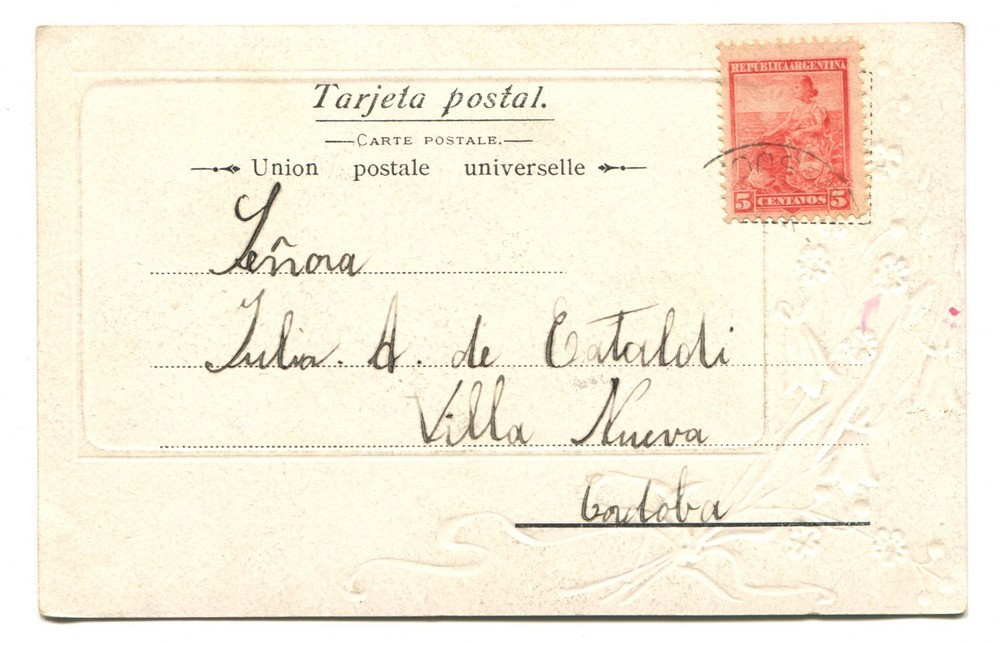 REPUBLICA ARGENTINA
Tarjeta postal.
CARTE POSTALE.
Union postale universelle
5 CENTAVOS 5
Señora
Julia. A. de Cataldi
Villa Nueva
Cordoba